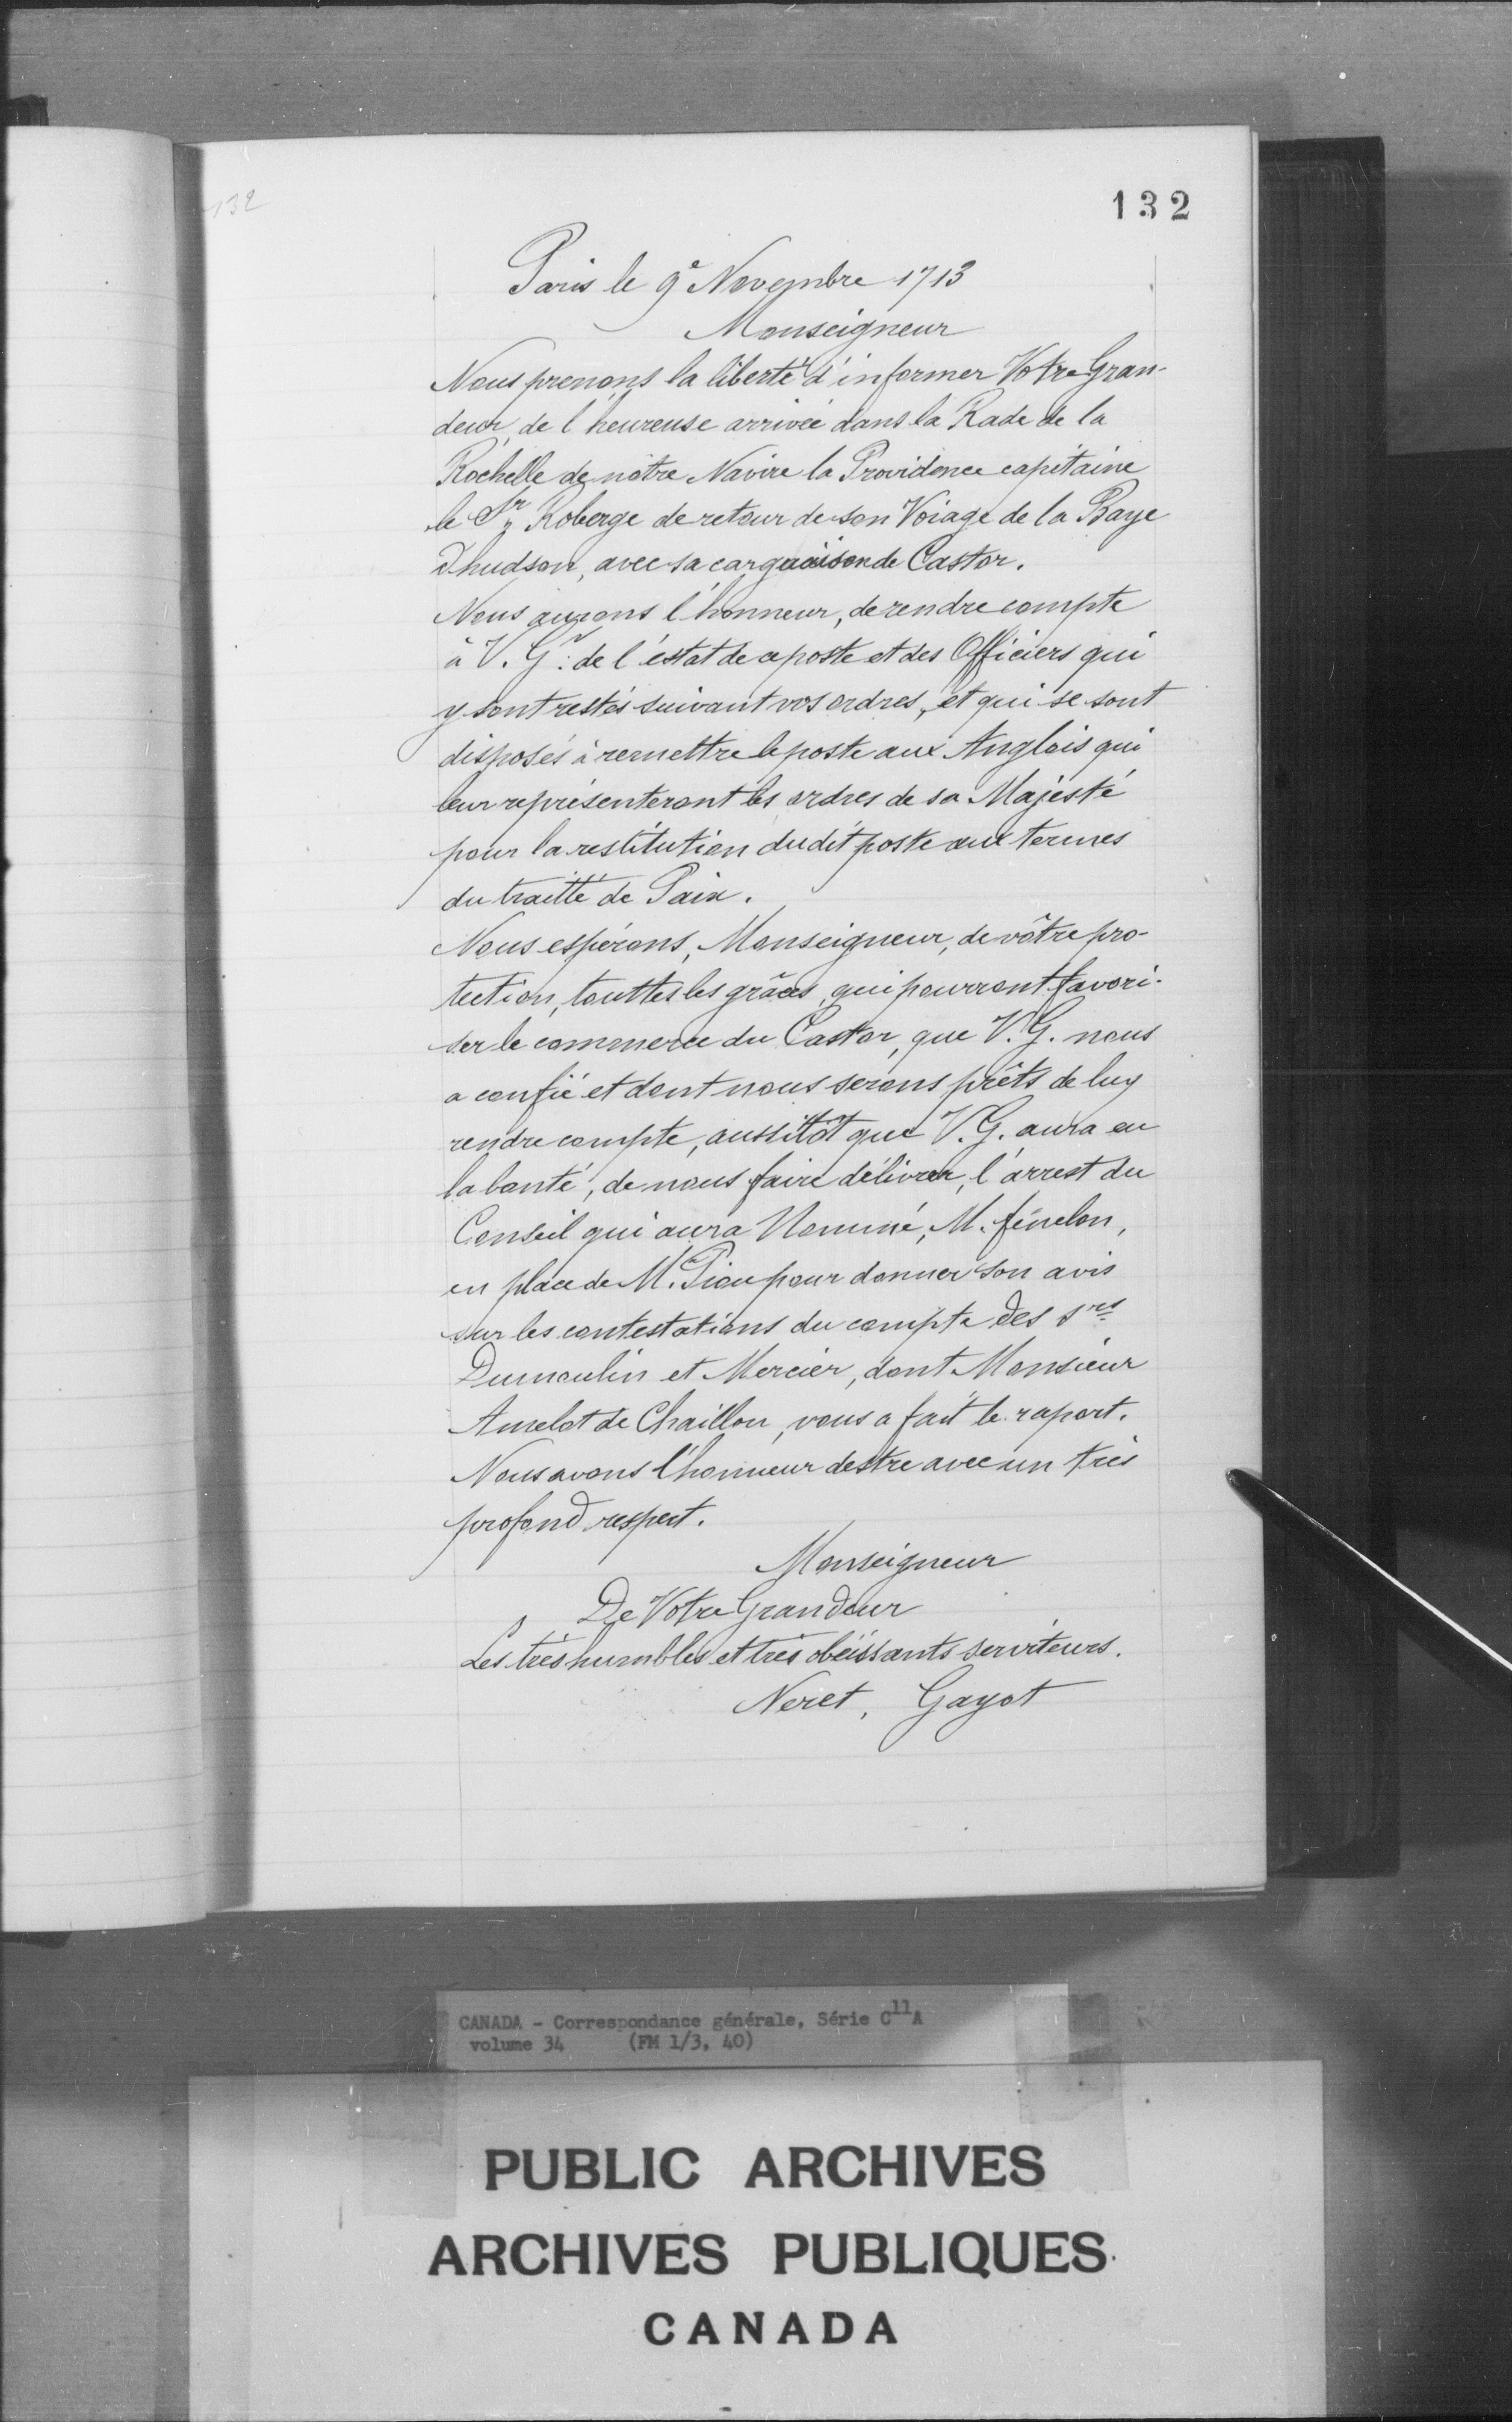 132
132
Paris le 9e Novembre 1713
Monseigneur
Nous prenons la liberté d'informer Votre Gran-
deur, de l'heureuse arrivée dans la Rade de la
Rochelle de nôtre Navire la Providence capitaine
le Sr Roberge de retour de son Voiage de la Baye
D'hudson, avec sa carguaison de Castor.
Nous aurons l'honneur, de rendre compte
à V. Gr: de l'éstat de ce poste et des Officiers qui
y sont restés suivant vos ordres, et qui se sont
disposés à remettre le poste aux Anglois qui
leur représenteront les ordres de sa Majésté
pour la restitution dudit poste aux termes
du traitté de Paix.
Nous espérons, Monseigneur, de vôtre pro-
tection, touttes les grâces, qui pourront favori-
ser le commerce du Castor, que V. G. nous
a confié et dont nous serons prêts de luy
rendre compte, aussitôt que V. G. aura eu
la bonté, de nous faire délivrer, l'arrest du
Conseil qui aura Nommé, M. fénelon,
en place de M. Piou pour donner son avis
sur les contestations du compte des srs
Dumoulin et Mercier, dont Monsieur
Amelot de Chaillou, vous a fait le raport.
Nous avons l'honneur destre avec un très
profond respect.
Monseigneur
De Votre Grandeur
Les très humbles et très obéissants serviteurs.
Neret, Gayot
CANADA - Correspondance générale, Série C11A
volume 34 (FM 1/3, 40)
PUBLIC ARCHIVES
ARCHIVES PUBLIQUES
CANADA